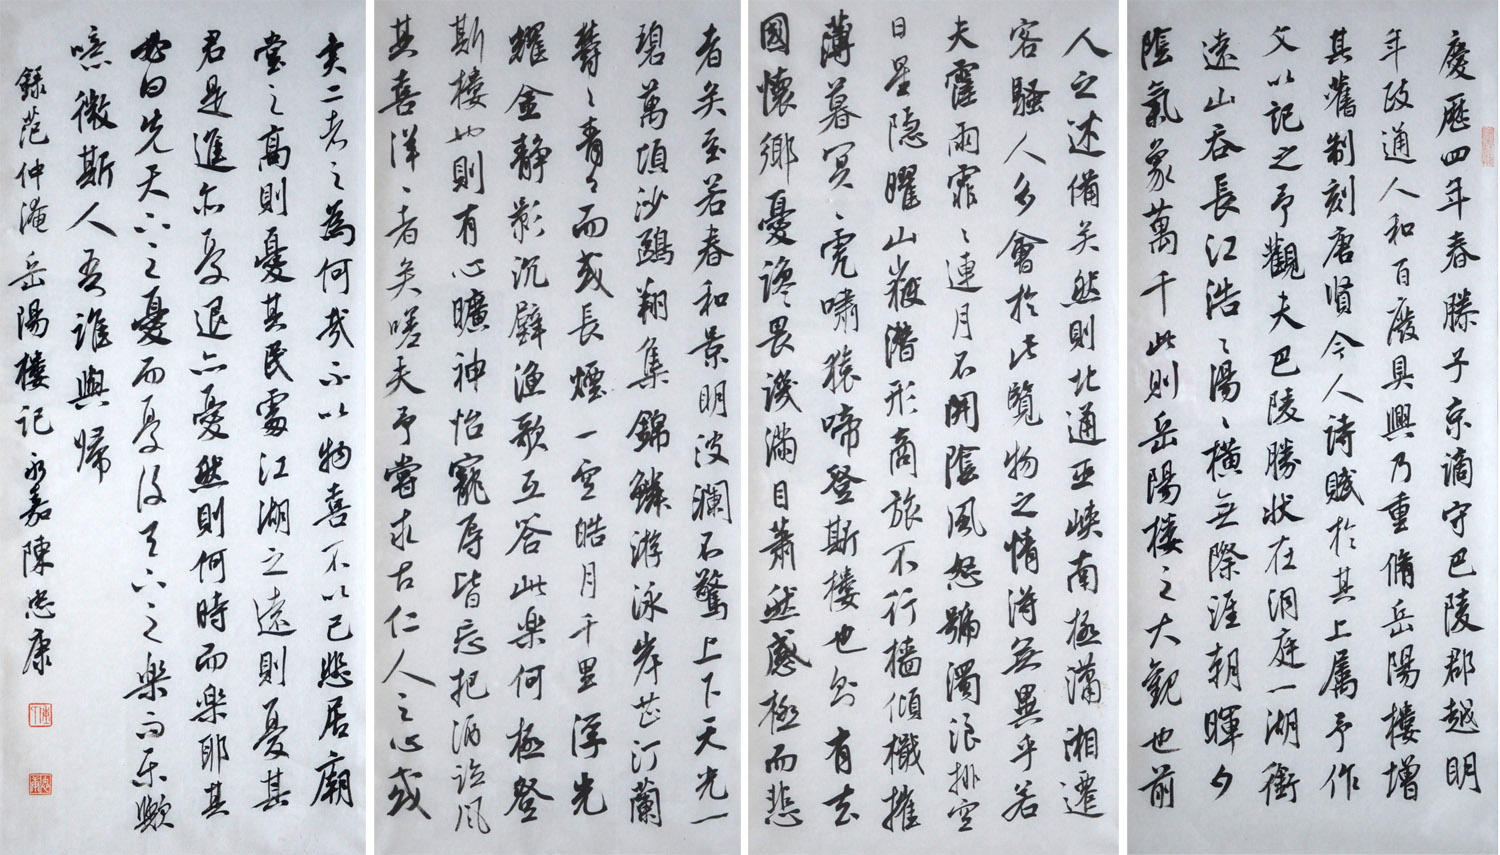 慶歷四年春滕子京謫守巴陵郡越明
年政通人和百廢具興乃重脩岳陽樓增
其舊制刻唐賢今人詩賦於其上屬予作
文以記之予觀夫巴陵勝狀在洞庭一湖銜
遠山吞長江浩〻湯〻橫無際涯朝暉夕
陰氣象萬千此則岳陽樓之大觀也前
人之述備矣然則北通巫峽南極瀟湘遷
客騷人多會於此覽物之情得無異乎若
夫霪雨霏〻連月不開陰風怒號濁浪排空
日星隱曜山嶽潛形商旅不行檣傾檝摧
薄暮冥〻虎嘯猿啼登斯樓也則有去
國懷鄉憂讒畏譏滿目蕭然感極而悲
者矣至若春和景明波瀾不驚上下天光一
碧萬頃沙鷗翔集錦鱗游泳岸芷汀蘭
鬱〻青〻而或長煙一空皓月千里浮光
耀金靜影沉璧漁歌互答此樂何極登
斯樓也則有心曠神怡寵辱皆忘把酒臨風
其喜洋〻者矣嗟夫予嘗求古仁人之心或
異二者之為何哉不以物喜不以己悲居廟
堂之高則憂其民處江湖之遠則憂其
君是進亦憂退亦憂然則何時而樂耶其
必曰先天下之憂而憂後天下之樂而樂歟
噫微斯人吾誰與歸
錄范仲淹岳陽樓記永嘉陳忠康